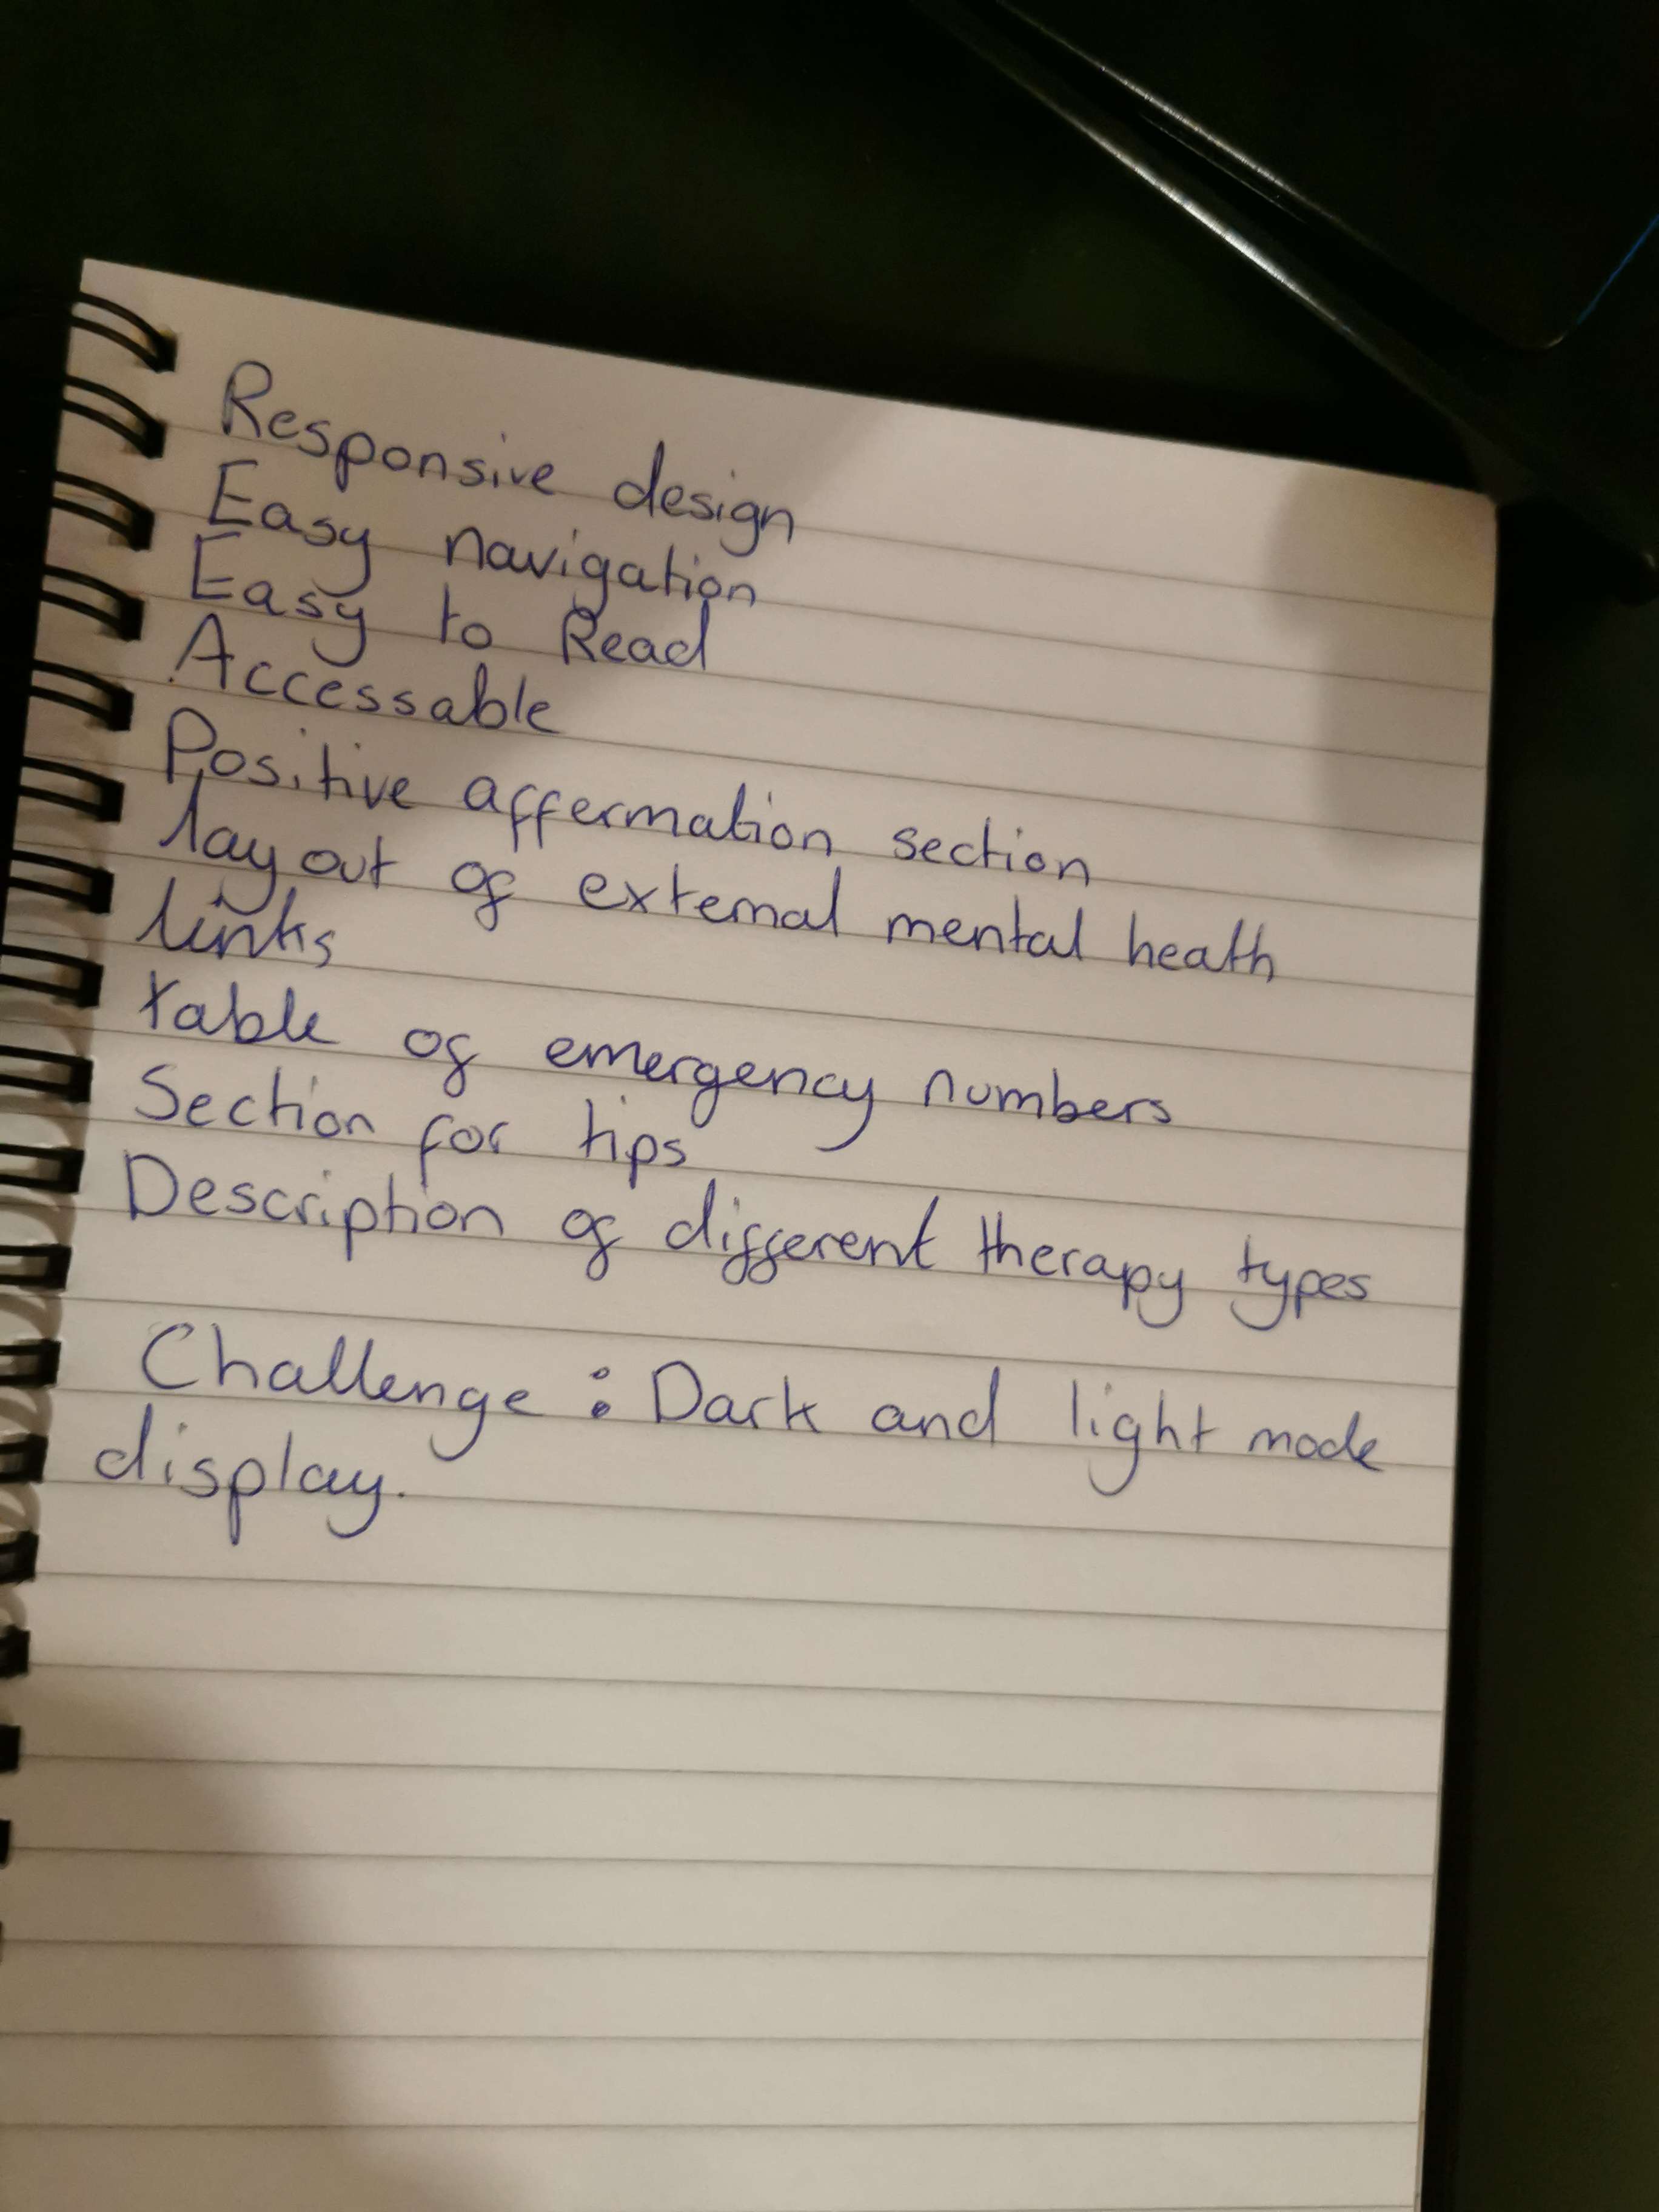 Responsive design
Easy navigation
Easy to Read
Accessable
Positive affermation section
layout of external mental heath
links
table of emergency numbers
Section for tips
Description of different therapy types
Challenge : Dark and light mode
display.